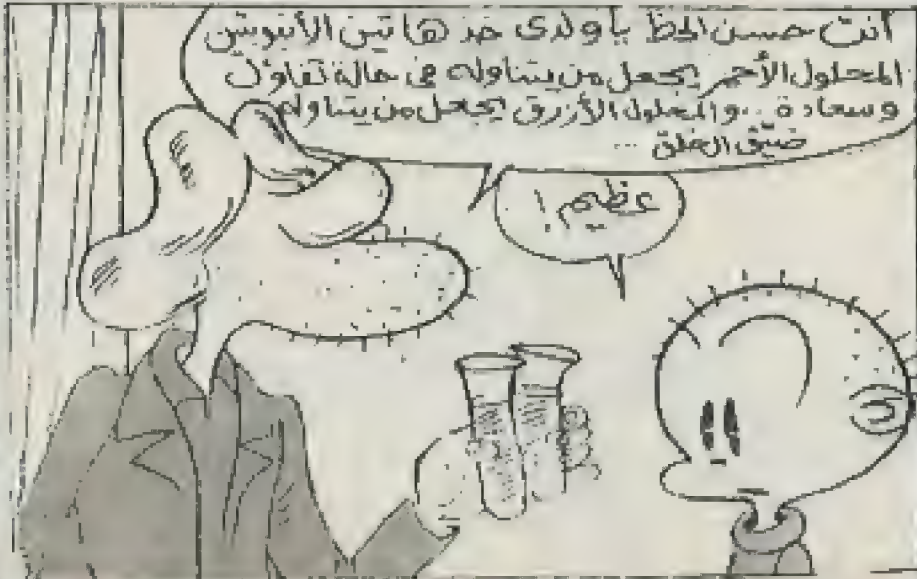 أنت حسن الحظ يا ولدى خذ هاتين الأنبوبتين
المحلول الأحمر يجعل من يتناوله فى حالة تفاؤل
وسعادة .. والمحلول الأزرق يجعل من يتناوله
ضيّق الخلق ...
عظيم !